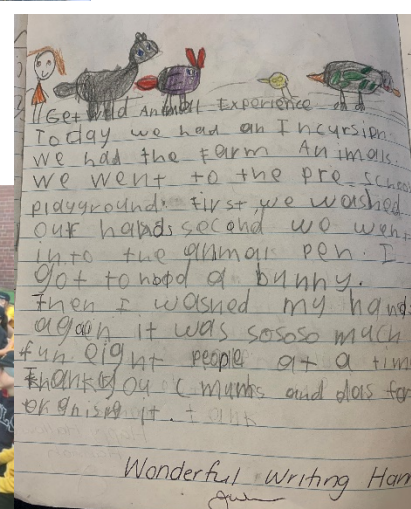 Get Wild Animal Experience
Today we had an Incursion
we had the Farm Animals.
we went to the pre school
playground. first we washed
our hands second we wen
into the animal pen. I
got to hood a bunny.
then I washed my hand
again it was sososo mach
fun eight people at a tim
thankyou mums and das for
orgnising it.
Wonderful Writing Han